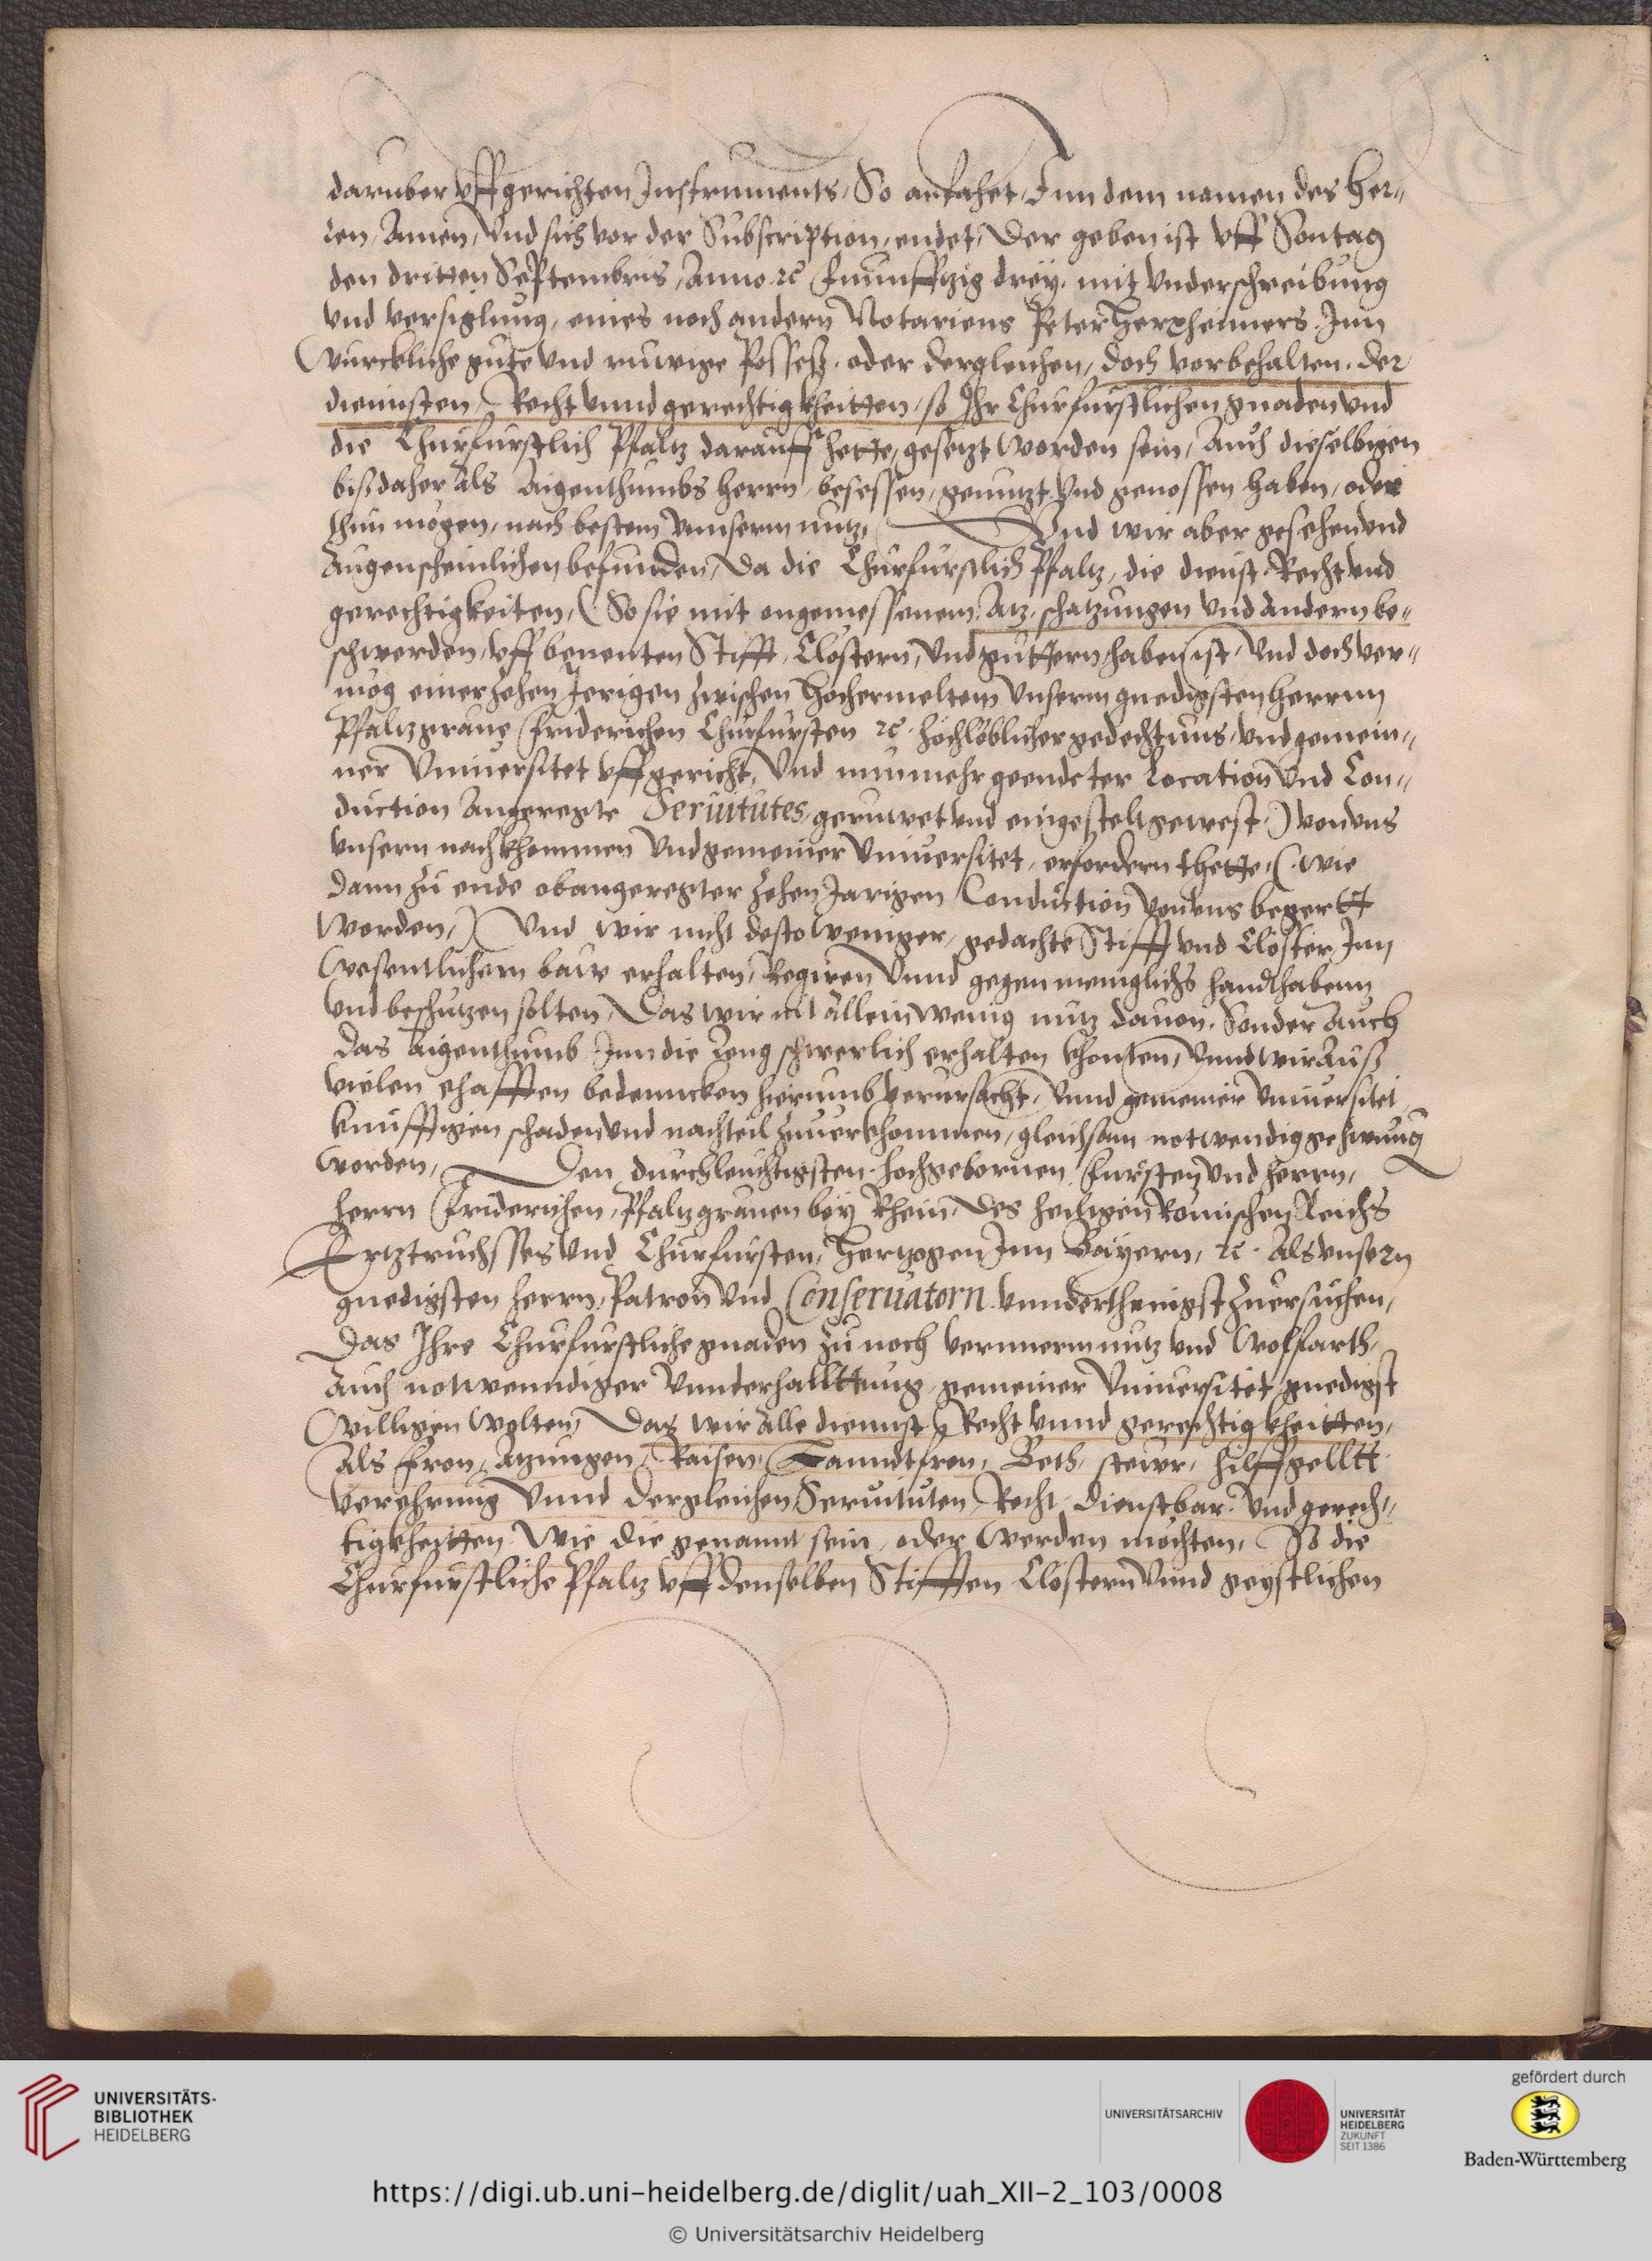 daruber vffgerichten Instruments, So anfahet, Inn dem namen des Her„
ren, Amen, Vnd sich vor der Subscription, endet, Der geben ist vff Sontag
den dritten Septembris, Anno ⁊c Funnffzig drey, mit vnderschreibung
vnd versiglung, eines noch andern Notariens Peter Herxheimers. Inn
Wurckliche gute vnd ruwige Posseß. oder dergleichen, doch vorbehalten. der
diennsten, Recht vnnd gerechtigkheitten, so Ihr Churfurstlichen gnaden vnd
die Churfurstlich Pfaltz darauff hette, gesetzt worden sein, Auch dieselbigen
bißdaher als Aigenthumbs herrn, besessen, genutzt vnd genossen haben, oder
thun mögen, nach bestem vnnserm nutz, Vnd wir aber gesehen vnd
Augenscheinlichen befunden, Da die Churfurstlich Pfaltz, die dienst. Recht vnd
gerechtigkeiten, (So sie mit ongemessenem, Atz, schatzungen vnd andern be„
schwerden, vff benenten Stifft, Clöstern, vnd guttern haben ist, Vnd doch ver„
mög einer zehen Jerigen zwischen Hochermeltem vnserm gnedigsten Herrnn
Pfaltzgraue Friderichen Churfursten ⁊c. hochlöblicher gedechtnus, vnd gemein„
ner Vniuersitet vffgericht, Vnd nunmehr geendeter Location vnd Con„
duction angeregte Seruitutes, geruwet vnd eingestelt gewest,) von vns
vnsern nachkhommen vnd gemeiner Vniuersitet, erfordern thette, (wie
dann zu ende obangeregter zehen Jarigen Conduction von vns begertt
worden,) Vnd wir nicht destoweniger, gedachte Stifft vnd Clöster Inn
wesentlichem bauw erhalten, Regiren vnnd gegen meniglichs handthabenn
vnd beschutzen solten, Das wir nit allein wenig nutz dauon. Sonder auch
das Aigenthumb Inn die Leng schwerlich erhalten khonten, Vnnd wir auß
vielen ehafften bedenncken hierumb verursacht, Vnnd gemeiner Vniuersitet
kunfftigen schaden vnd nachteil zuuerkhommen, gleichsam notwendig gezwung
worden, Den durchleuchtigsten hochgebornen Fursten vnd herrn,
herrn Friderichen, Pfaltzgrauen bey Rhein, Des heiligen Romischen Reichs
Ertztruchsses vnd Churfursten, Hertzogen Inn Bayern, ⁊c. Als vnsern
gnedigsten herrn, Patron vnd Conseruatorn. vnnderthenigst zuersuchen,
Das Ihre Churfurstliche gnaden zu noch vernnerm nutz vnd Wolfarth,
Auch notwenndiger vnnterhalltung gemeiner Vniuersitet, gnedigst
willigen wolten, Das wir alle diennst, Recht vnnd gerechtigkheitten,
Als fron, Atzungen, Raisen, Lanndtfron, Beth, steur, hilffgelltt
Verehrung vnnd dergleichen Seruituten, Recht, dienstbar. vnd gerech„
tigkheitten wie die genannt sein, oder werden möchten, So die
Churfurstliche Pfaltz vff denselben Stifften Clöstern vnnd geystlichen
UNIVERSITÄTS-
BIBLIOTHEK
HEIDELBERG
UNIVERSITÄTSARCHIV
UNIVERSITÄT
HEIDELBERG
ZUKUNFT
SEIT 1386
gefördert durch
Baden-Württemberg
https://digi.ub.uni-heidelberg.de/diglit/uah_XII-2_103/0008
© Universitätsarchiv Heidelberg